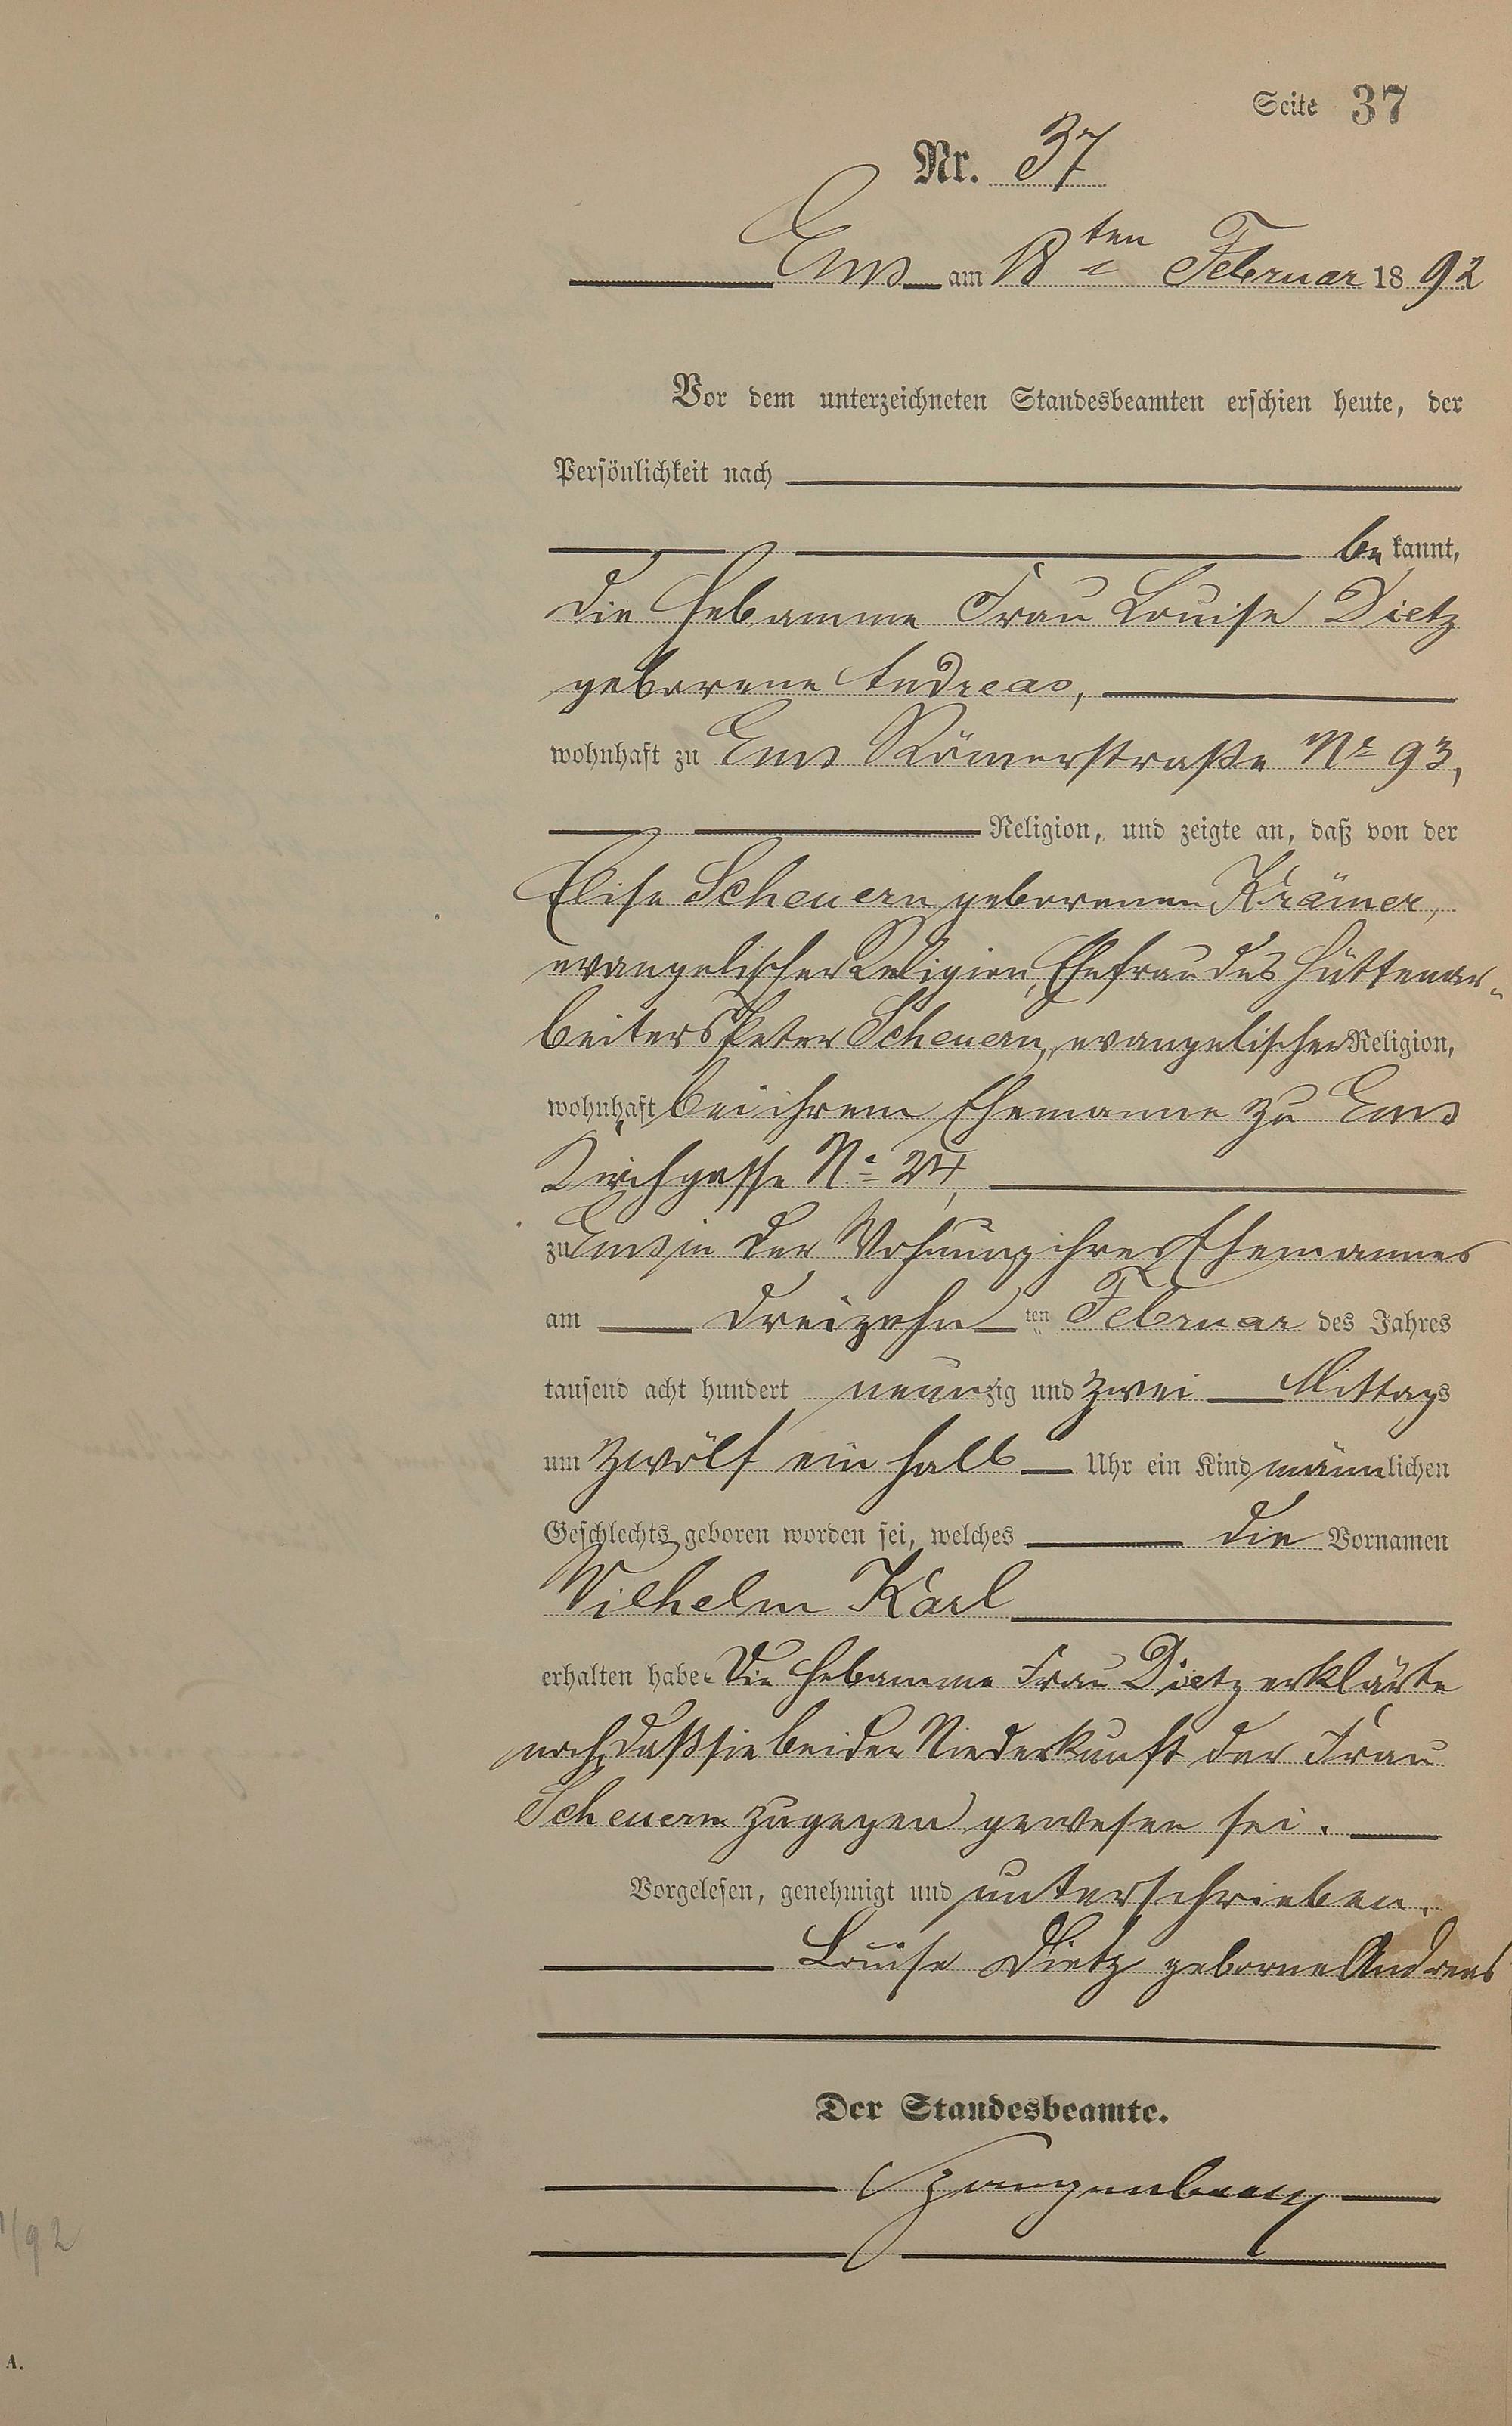 Seite 37
Nr. 37
Ems am 18ten Februar 1892
Vor dem unterzeichneten Standesbeamten erschien heute, der
Persönlichkeit nach
bekannt,
die Hebamme Frau Louise Dietz
geborene Andreas,
wohnhaft zu Ems Römerstraße No 93,
Religion, und zeigte an, daß von der
Elise Scheuern geborenen Krämer,
evangelischer Religion, Ehefrau des Hüttenar-
beiters Peter Scheuern, evangelischer Religion,
wohnhaft bei ihrem Ehemanne zu Ems
Kirchgasse No 24,
zu Ems in der Wohnung ihres Ehemannes
am dreizehnten Februar des Jahres
tausend acht hundert neunzig und zwei Mittags
um zwölf ein halb Uhr ein Kind männlichen
Geschlechts geboren worden sei, welches die Vornamen
Wilhelm Karl
erhalten habe. Die Hebamme Frau Dietz erklärte
noch, daß sie bei der Niederkunft der Frau
Scheuern zugegen gewesen sei.
Vorgelesen, genehmigt und unterschrieben.
Louise Dietz geborne Andreas
Der Standesbeamte.
/92
A.